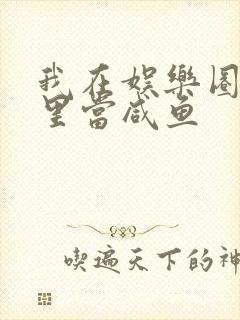 我在娱樂圈
里當咸鱼
喫遍天下的神